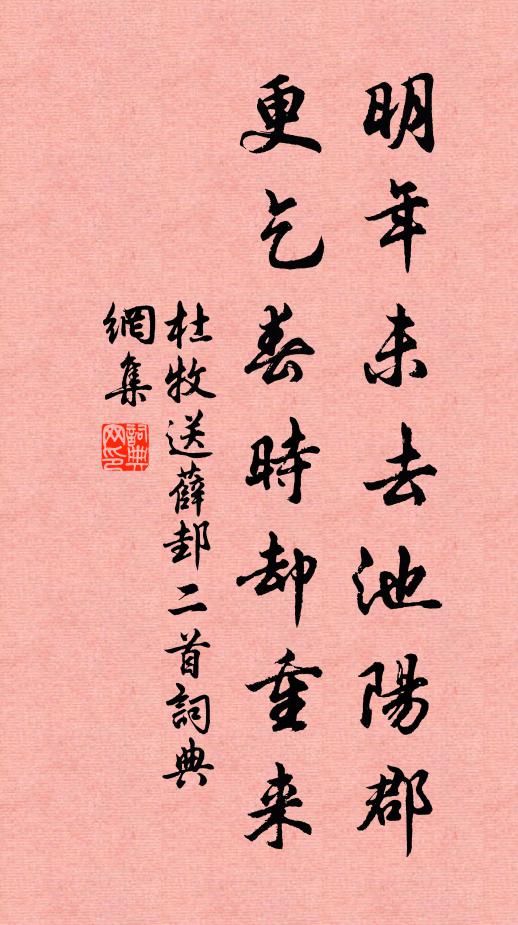 明年未去池陽郡
更乞春時却重来
杜牧送薛邽二首詞典
網集
詞典網印